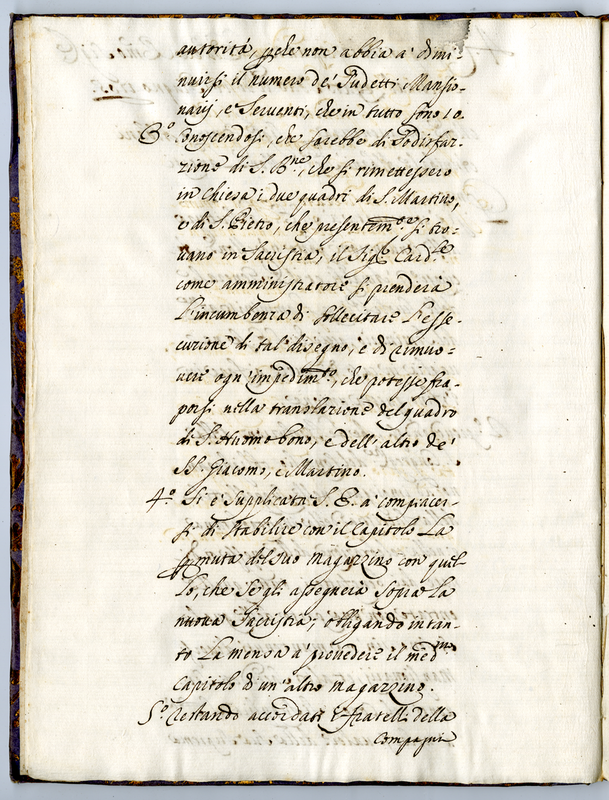 autorità, p che non abbia a' dimi:
nuirsi il numero de' Sudetti Mansio:
narij, e Serventi, che in tutto sono 10.
3.° Conoscendosi, che sarebbe di Sodisfa:
zione di S. B.ne, che si rimettessero
in Chiesa i due quadri di S. Martino,
e di S. Pietro, che presentem.te si tro:
vano in Sacristia, il Sig.r Card.le
come amministratore si prenderà
l'incumbenza di sollecitare l'esse:
cuzione di tal' disegno, e di rimuo:
vere ogn' impedim.to, che potesse fra:
porsi nella translazione del quadro
di S. Huomo bono, e dell' altro de'
SS. Giacomo, e Martino.
4.° Si è Supplicata S. E. a' compiacer:
si di stabilire con il Capitolo La
pmuta del suo magazzino con quel:
lo, che Se gli assegnerà Sopra La
nuova Sacristia; obligando intan:
to La mensa a' provedere il med.mo
Capitolo d' un' altro magazzino.
5.° Restando accordati i fratelli della
Compagnia